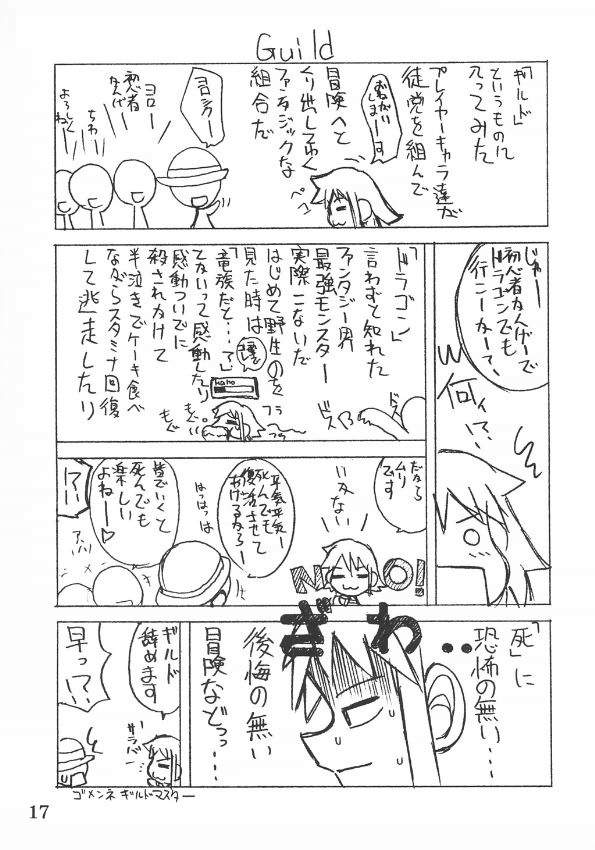 Guild
「ギルド」
というものに
入ってみた
プレイヤーキャラ達が
徒党を組んで
おねがい
しまーーす
冒険へと
くり出してゆく
ファンタジックな
組合だ
ペコ
ヨロシクー
ヨロー
初心者
なんだー
ちわー
よろしくね
じゃー
初心者なんでー
ドラゴンでも
行こーかー?
何ィ!?
「ドラゴン」
言わずと知れた
ファンタジー界
最強モンスター
実際こないだ
はじめて野生のを
見た時は
「竜族だと…!」
てないって感動したり
感動ついでに
殺されかけて
半泣きでケーキ食べ
ながらスタミナ回復
して逃走したり
フラ
フラ
もぐ
もぐ
ドス
ドス
だから
ムリ
です
いえない
NO!
平気平気ー
死んでも
復活させて
あげるからー
はっはっは
皆でいくと
死んでも
楽しい
よねー♡
アハハ
!?
「死」に
恐怖の無い…
ぎわ・・
後悔の無い
冒険などっ…
ギルド
辞めます
サラバー
早っ!?
ゴメンネ ギルドマスター
17